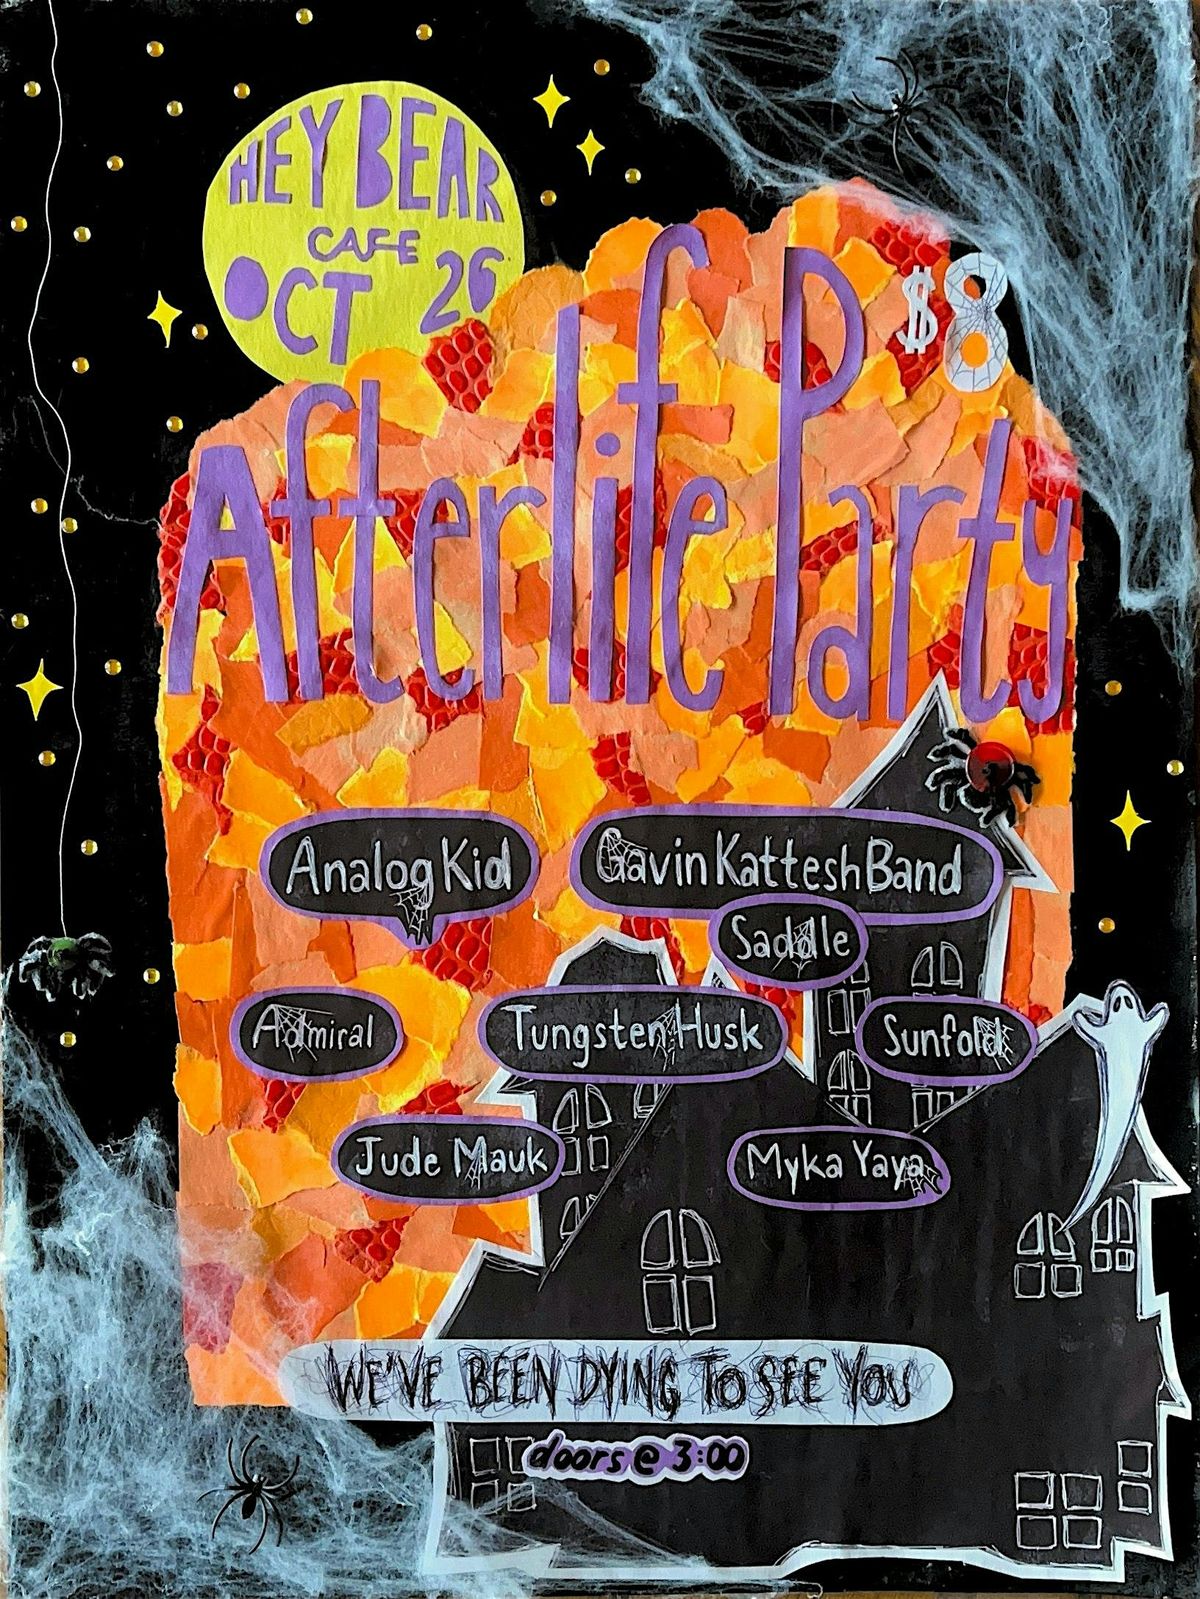 HEY BEAR
CAFE
OCT 26
$8
Afterlife Party
Analog Kid
Gavin Kattesh Band
Saddle
Admiral
Tungsten Husk
Sunfold
Jude Mauk
Myka Yaya
WE'VE BEEN DYING TO SEE YOU
doors @ 3:00